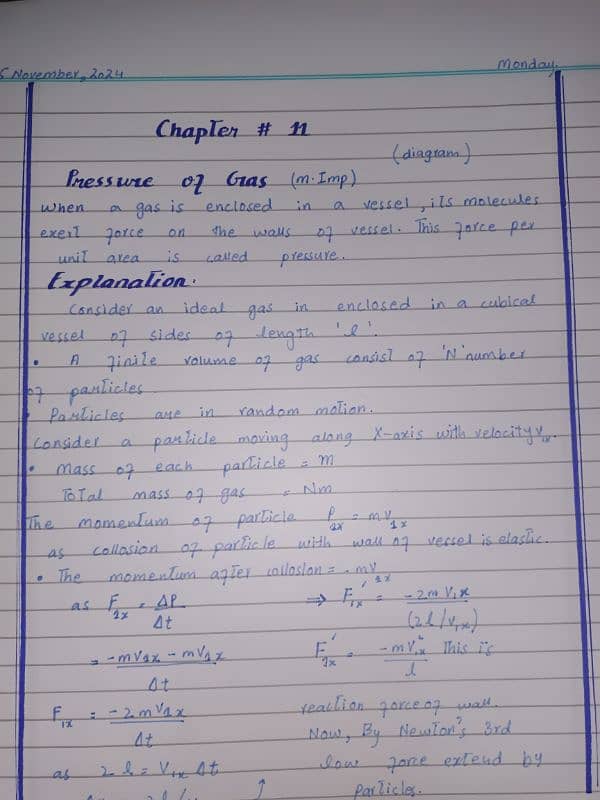 5 November, 2024
Monday.
Chapter # 11
(diagram)
Pressure of Gas (m.Imp)
When a gas is enclosed in a vessel, its molecules
exert force on the walls of vessel. This force per
unit area is called pressure.
Explanation.
Consider an ideal gas in enclosed in a cubical
vessel of sides of length 'l'.
• A finite volume of gas consist of 'N' number
of particles.
• Particles are in random motion.
Consider a particle moving along X-axis with velocity V₁ₓ.
• Mass of each particle = m
Total mass of gas = Nm
The momentum of particle P₁ₓ = mV₁ₓ
as collosion of particle with wall of vessel is elastic.
• The momentum after collosion = -mV₁ₓ
as F₁ₓ = ΔP/Δt
= -mV₁ₓ - mV₁ₓ / Δt
F₁ₓ = -2mV₁ₓ / Δt
as 2l = V₁ₓ Δt
⇒ F₁ₓ' = -2mV₁ₓ / (2l/V₁ₓ)
F₁ₓ' = -mV₁ₓ² / l This is
reaction force of wall.
Now, By Newton's 3rd
low force extend by
Particles.